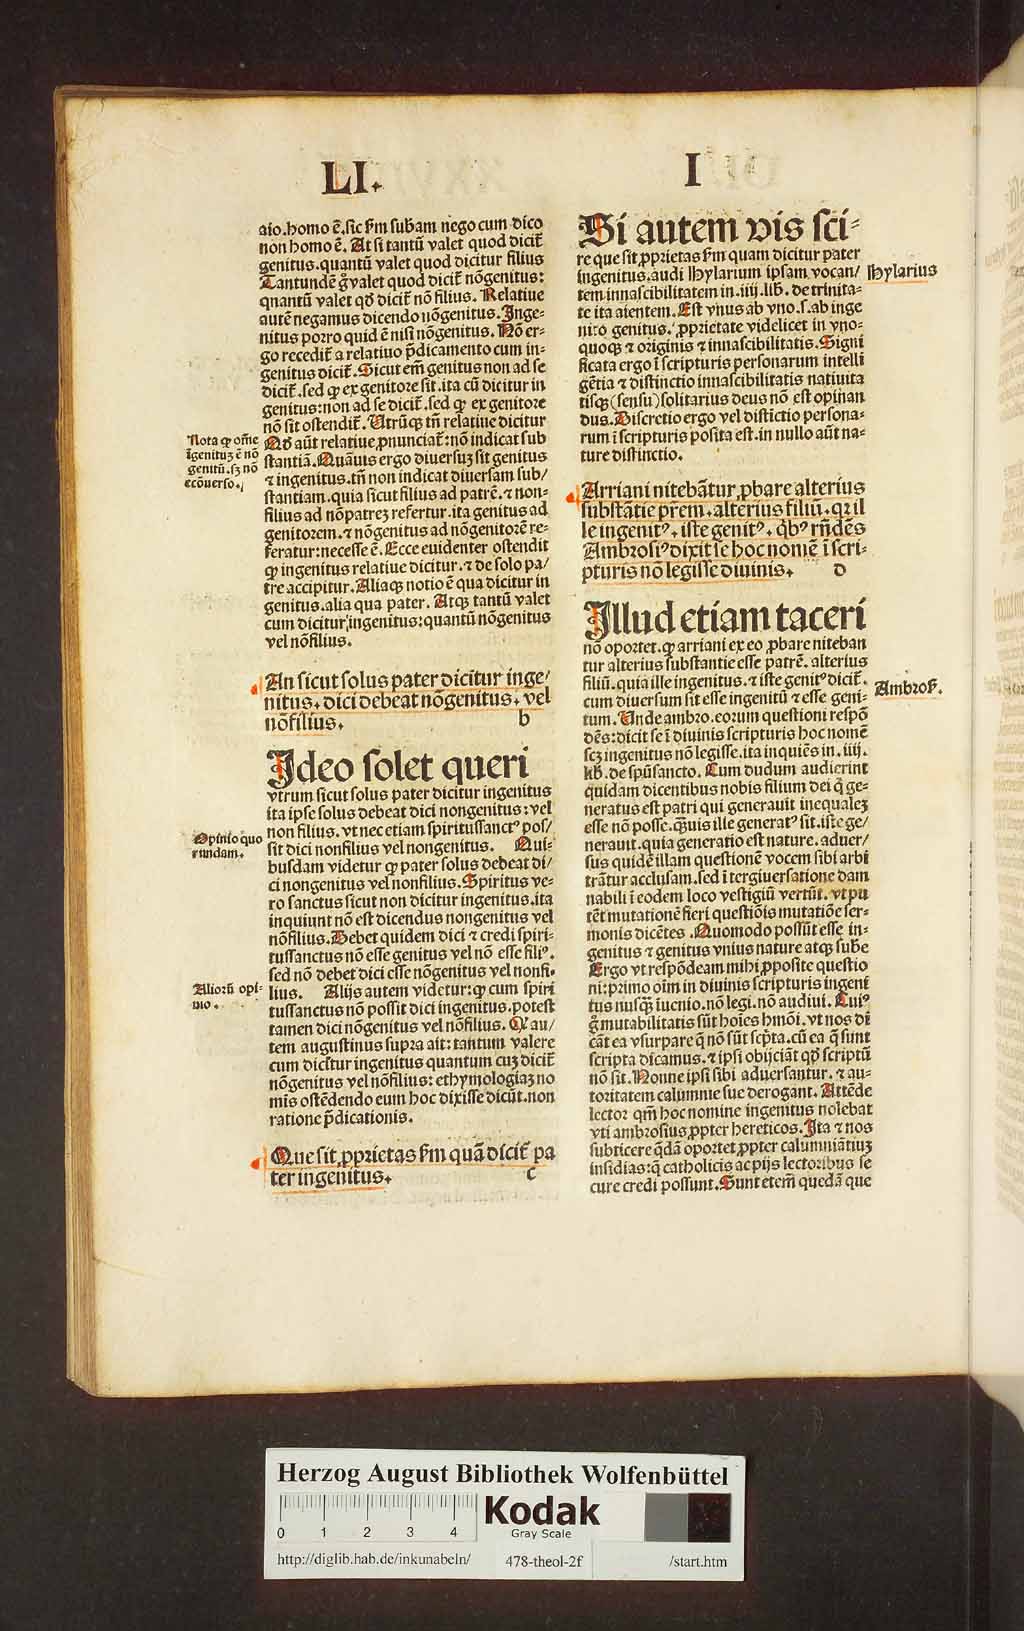 LI. I
aio.homo ē.sic ẜm subam nego cum dico
non homo ē. At si tantū valet quod dicit̄
genitus.quantū valet quod dicitur filius
Tantundē g̊ valet quod dicit̄ nōgenitus:
qnantū valet qd̓ dicit̄ nō filius. Relatiue
autē negamus dicendo nōgenitus. Inge-
nitus porro quid ē nisi nōgenitus. Nō er-
go recedit̄ a relatiuo p̄dicamento cum in-
genitus dicit̄. Sicut em̄ genitus non ad se
dicit̄. sed ꝙ ex genitore sit. ita cū dicitur in
genitus:non ad se dicit̄. sed ꝙ ex genitore
nō sit ostendit̄. Vtrūqꝫ tn̄ relatiue dicitur
Qd̓ aūt relatiue ꝓnunciat̄:nō indicat sub
stantiā. Quāuis ergo diuersuꝫ sit genitus
⁊ ingenitus. tn̄ non indicat diuersam sub/
stantiam. quia sicut filius ad patrē. ⁊ non-
filius ad nōpatreꝫ refertur. ita genitus ad
genitorem. ⁊ nōgenitus ad nōgenitorē re-
feratur:necesse ē. Ecce euidenter ostendit
ꝙ ingenitus relatiue dicitur. ⁊ de solo pa/
tre accipitur. Aliaqꝫ notio ē qua dicitur in
genitus. alia qua pater. Atqꝫ tantū valet
cum dicitur,ingenitus: quantū nōgenitus
vel nōfilius.
Nota ꝙ om̄e
īgenituꝫ ē nō
genitū. sꝫ nō
ecōuerso.
An sicut solus pater dicitur inge/
nitus. dici debeat nōgenitus. vel
nōfilius. b
Ideo solet queri
vtrum sicut solus pater dicitur ingenitus
ita ipse solus debeat dici nongenitus: vel
non filius. vt nec etiam spiritussanctꝰ pos/
sit dici nonfilius vel nongenitus. Qui-
busdam videtur ꝙ pater solus debeat di/
ci nongenitus vel nonfilius. Spiritus ve-
ro sanctus sicut non dicitur ingenitus. ita
inquiunt nō est dicendus nongenitus vel
nōfilius. Debet quidem dici ⁊ credi spiri-
tussanctus nō esse genitus vel nō esse filiꝰ.
sed nō debet dici esse nōgenitus vel nonfi-
lius. Alijs autem videtur:ꝙ cum spiri
tussanctus nō possit dici ingenitus. potest
tamen dici nōgenitus vel nōfilius. Qꝛ au/
tem augustinus supra ait: tantum valere
cum dicitur ingenitus quantum cuꝫ dicit̄
nōgenitus vel nōfilius: ethymologiaꝫ no
mis ostēdendo eum hoc dixisse dicūt. non
ratione p̄dicationis.
Opinio quo
rundam.
Alioꝝ opi-
nio.
Que sit ꝓprietas ẜm quā dicit̄ pa
ter ingenitus. c
Si autem vis sci-
re que sit ꝓprietas ẜm quam dicitur pater
ingenitus. audi Hylarium ipsam vocan/
tem innascibilitatem in. iiij. lib. de trinita-
te ita aientem. Est vnus ab vno. s. ab inge
nito genitus. ꝓprietate videlicet in vno-
quoqꝫ ⁊ originis ⁊ innascibilitatis. Signi
ficata ergo ī scripturis personarum intelli
gētia ⁊ distinctio innascibilitatis natiuita
tisqꝫ (sensu) solitarius deus nō est opinan
dus. Discretio ergo vel distictio persona-
rum ī scripturis posita est. in nullo aūt na-
ture distinctio.
Hylarius
Arriani nitebātur ꝓbare alterius
substātie pr̄em. alterius filiū. qꝛ il
le ingenitꝰ. iste genitꝰ. qb̓ꝰ rn̄dēs
Ambrosiꝰ dixit se hoc nomē ī scri-
pturis nō legisse diuinis. d
Illud etiam taceri
nō oportet. ꝙ arriani ex eo ꝓbare niteban
tur alterius substantie esse patrē. alterius
filiū. quia ille ingenitus. ⁊ iste genitꝰ dicit̄.
cum diuersum sit esse ingenitū ⁊ esse geni-
tum. Vnde ambro. eorum questioni respō
dēs: dicit se ī diuinis scripturis hoc nomē
scꝫ ingenitus nō legisse. ita inquiēs in. iiij.
lib. de spū sancto. Cum dudum audierint
quidam dicentibus nobis filium dei q̄ ge-
neratus est patri qui generauit inequaleꝫ
esse nō posse. qꝫuis ille generatꝰ sit. iste ge/
nerauit. quia generatio est nature. aduer/
sus quidē illam questionē vocem sibi arbi
trātur acclusam. sed ī tergiuersatione dam
nabili ī eodem loco vestigiū vertūt. vt pu
tēt mutationē fieri questiōis mutatiōe ser-
monis dicētes. Quomodo possūt esse in-
genitus ⁊ genitus vnius nature atqꝫ sube
Ergo vt respōdeam mihi ꝓposite questio
ni: primo oīm in diuinis scripturis ingeni
tus nusqꝫ īuenio. nō legi. nō audiui. Cuiꝰ
g̊ mutabilitatis sūt hoīes hmōi. vt nos di
cāt ea vsurpare q̄ nō sūt scpta. cū ea q̄ sunt
scripta dicamus. ⁊ ipsi obijciāt qd̓ scriptū
nō sit. Nonne ipsi sibi aduersantur. ⁊ au-
toritatem calumnie sue derogant. Attēde
lector qm̄ hoc nomine ingenitus nolebat
vti ambrosius ꝓpter hereticos. Ita ⁊ nos
subticere q̄dā oportet ꝓpter calumniātiuꝫ
insidias: q̄ catholicis ac pijs lectoribus se
cure credi possunt. Sunt etem̄ quedā que
Ambros.
Herzog August Bibliothek Wolfenbüttel
0 1 2 3 4
Kodak
Gray Scale
http://diglib.hab.de/inkunabeln/ 478-theol-2f /start.htm